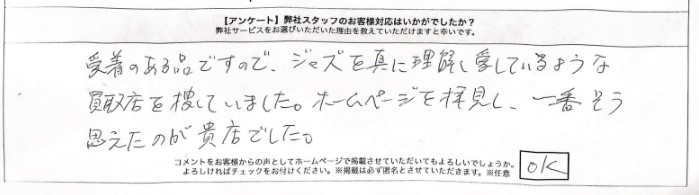 【アンケート】弊社スタッフのお客様対応はいかがでしたか？
弊社サービスをお選びいただいた理由を教えていただけますと幸いです。
受着のある品ですので、ジャズを真に理解し愛しているような
買取店を捜していました。ホームページを拝見し、一番そう
思えたのが貴店でした。
コメントをお客様からの声としてホームページで掲載させていただいてもよろしいでしょうか。
よろしければチェックをお付けください。※掲載は必ず匿名とさせていただきます。※任意
OK